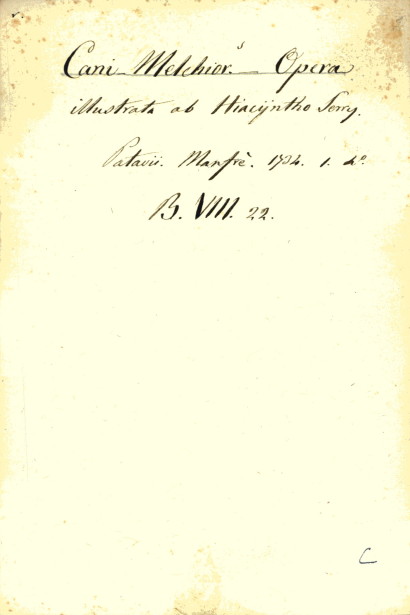 Cani Melchior.s — Opera
illustrata ab Hiacÿntho Serry.
Patavii. Manfrè. 1734. 1. 4º.
B. VIII. 22.
C